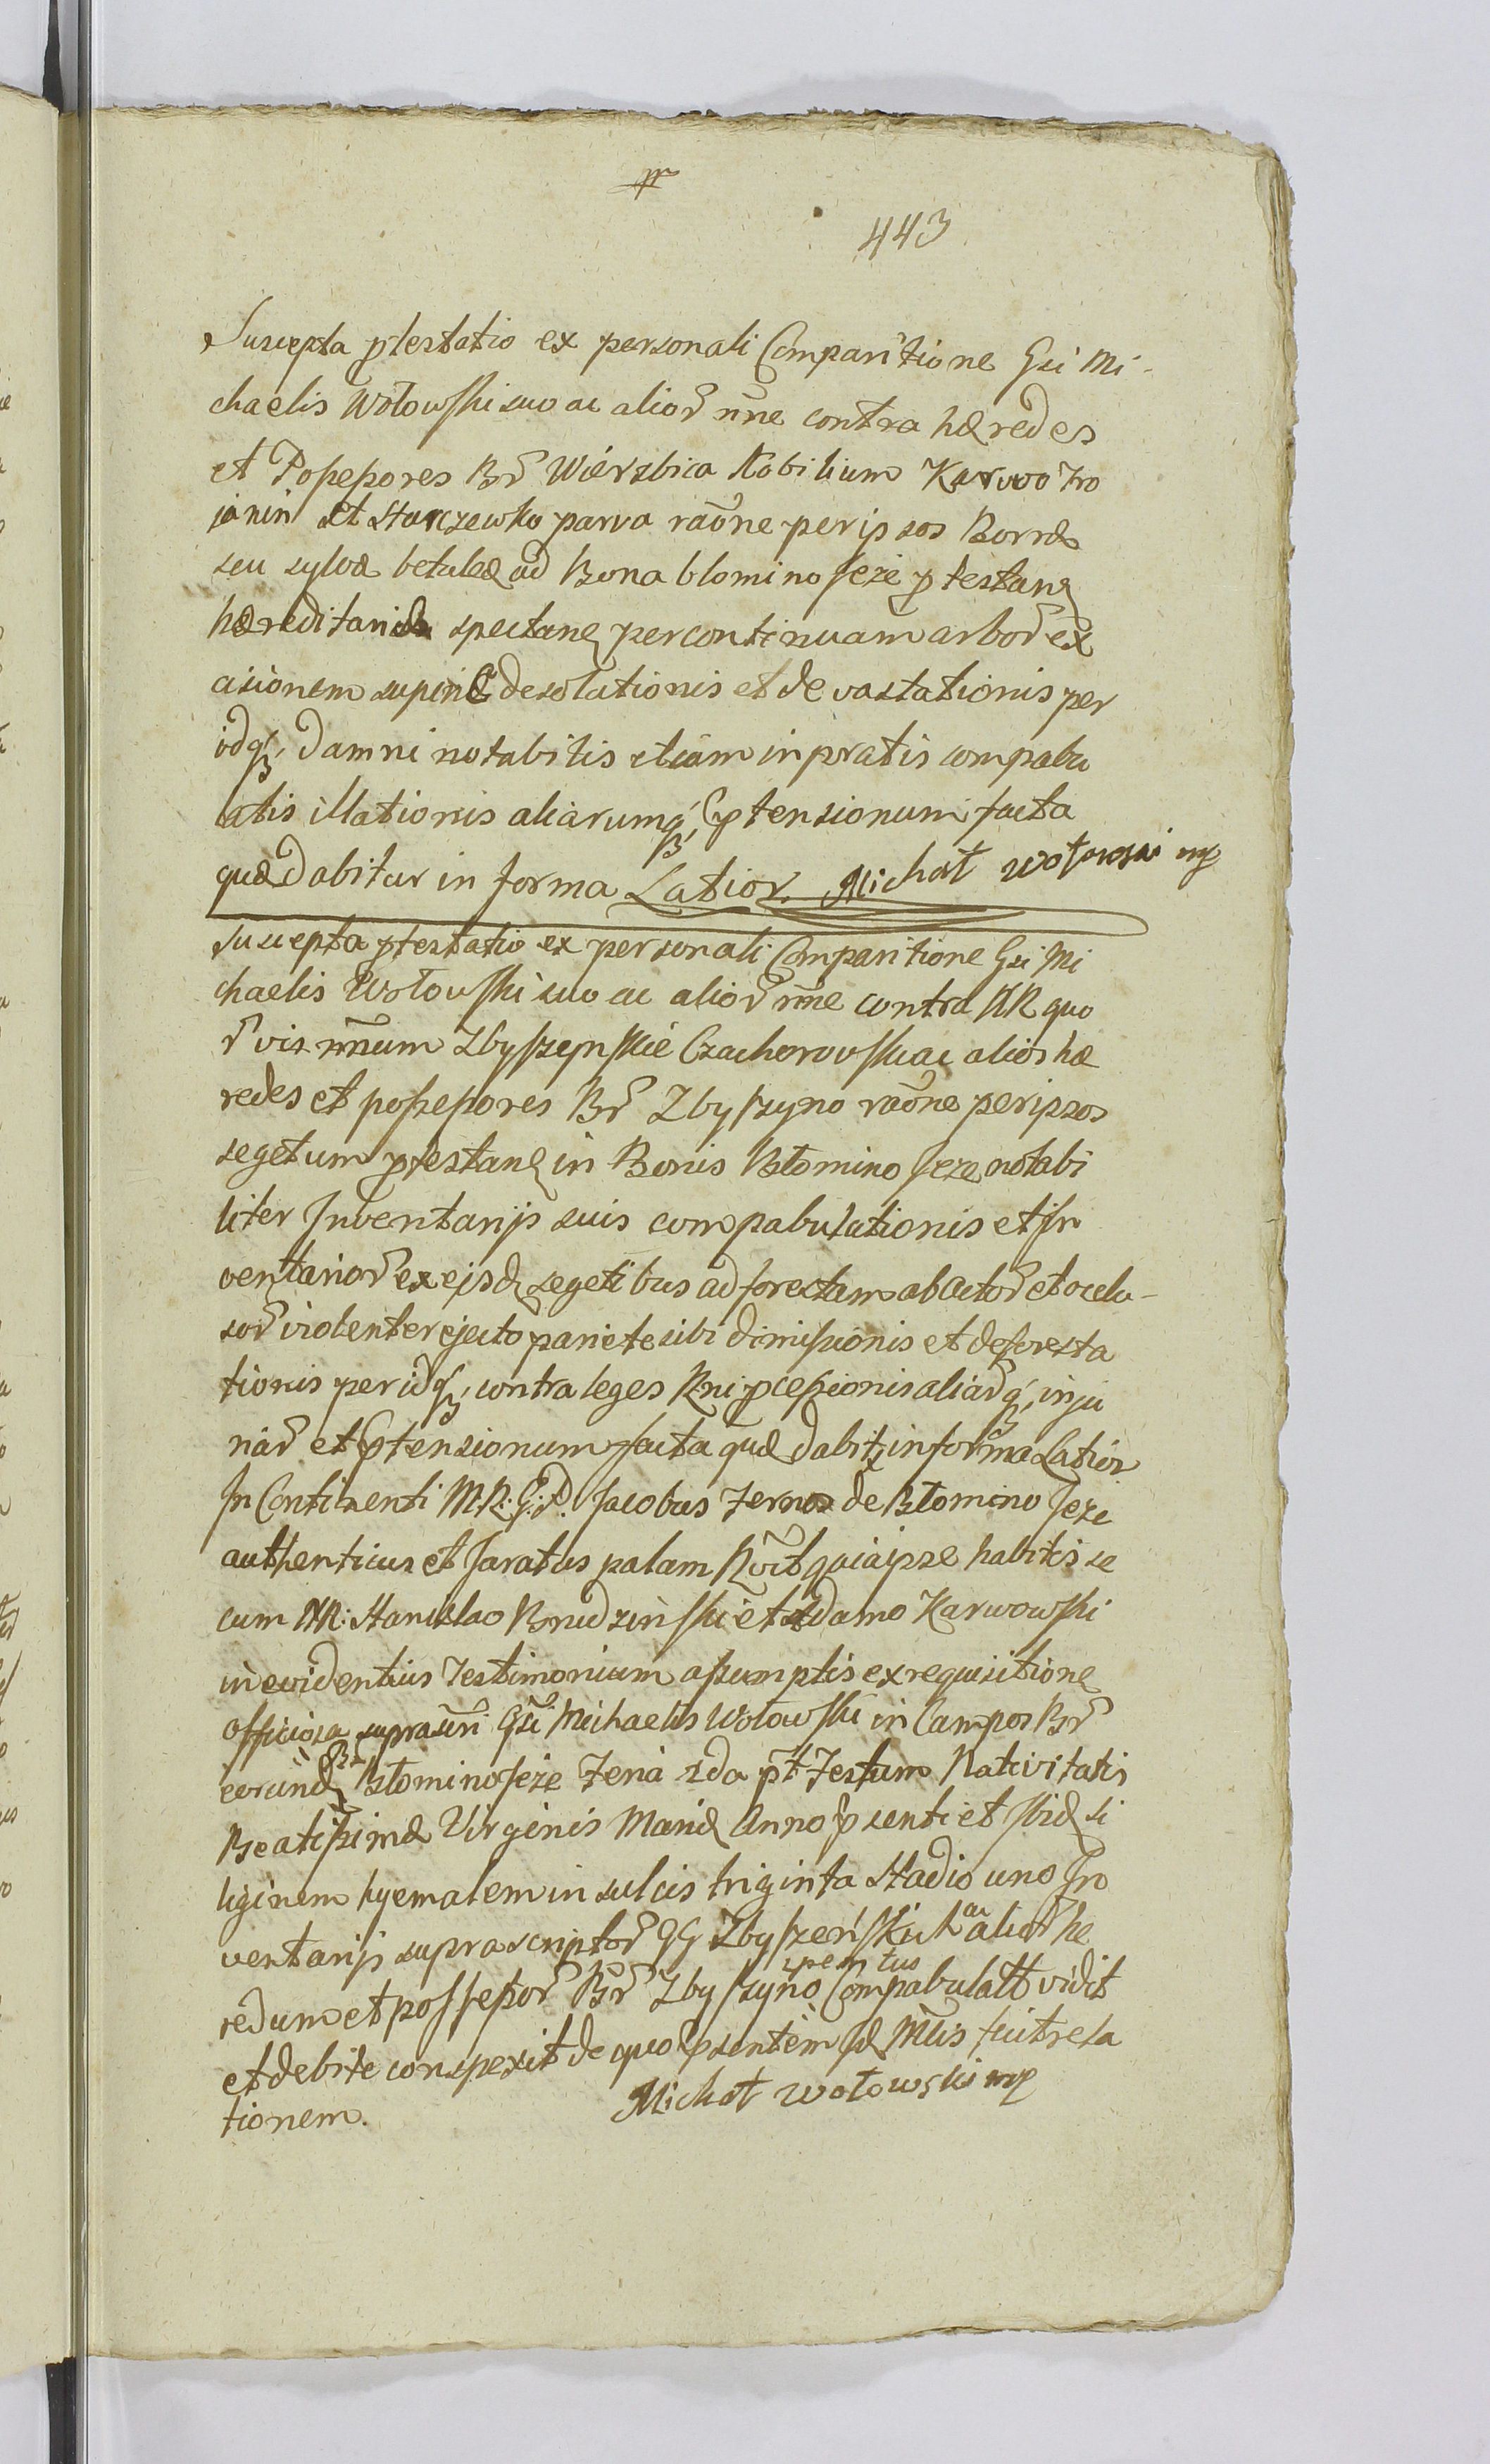 443
Suscepta ptestatio ex personali Comparitione Gsi Mi-
chaelis Wołowski suo ac alior nne contra hæredes
et Possessores Br Wierzbica Nobilium Karwo Tro
janin et Starczewko parva raone per ipsos Borræ
seu sylvæ betuleæ ad Bona blomino Jeże ptestan
hæreditaria spectan per continuam arbor ex
cisionem supinæ desolationis et devastationis per
idq, damni notabilis etiam in pratis compabu
latis illationis aliarumq, ptensionum facta
quæ dabitur in forma Latior. Michał Wołowski mp
Suscepta ptestatio ex personali Comparitione Gsi Mi
chaelis Wołowski suo ac alior nne contra NN quo
r vis nnum Zbyszynskie Czachorowski ac alios hæ
redes et possessores Br Zbyszyno raone per ipsos
segetum ptestan in Bonis Błomino Jeze notabi
liter Inventarijs suis compabulationis et In
ventarior ex ejsd segetibus ad forestam abactor et occlu-
sor violenter ejecto pariete sibi dimissionis et deforesta
tionis per idq, contra leges Rni pcessionis aliarq, inju
riar et ptensionum facta quæ dabit in forma Latior
In Continenti M.R.G.P. Jacobus Ferno de Błomino Jeże
authenticus et Juratus palam Rvit quia ipse habitis se
cum NN: Stanislao Brudzinski et Adamo Karwowski
in evidentius Testimonium assumptis ex requisitione
officiosa suprascri Gsi Michaelis Wołowski in Campos Br
eorund Błomino Jeże Feria 2da pt Festum Nativitatis
Beatissimæ Virginis Mariæ Anno psenti et ibid si
liginem hyemalem in sulcis triginta Stadio uno In
ventarijs suprascriptor GG Zbyszeńskich ac alior he
redum et possessor Br Zbyszyno penitus Compabulatt vidit
et debite conspexit de quo psentem sd Mtis fecit rela
tionem. Michał Wołowski mp